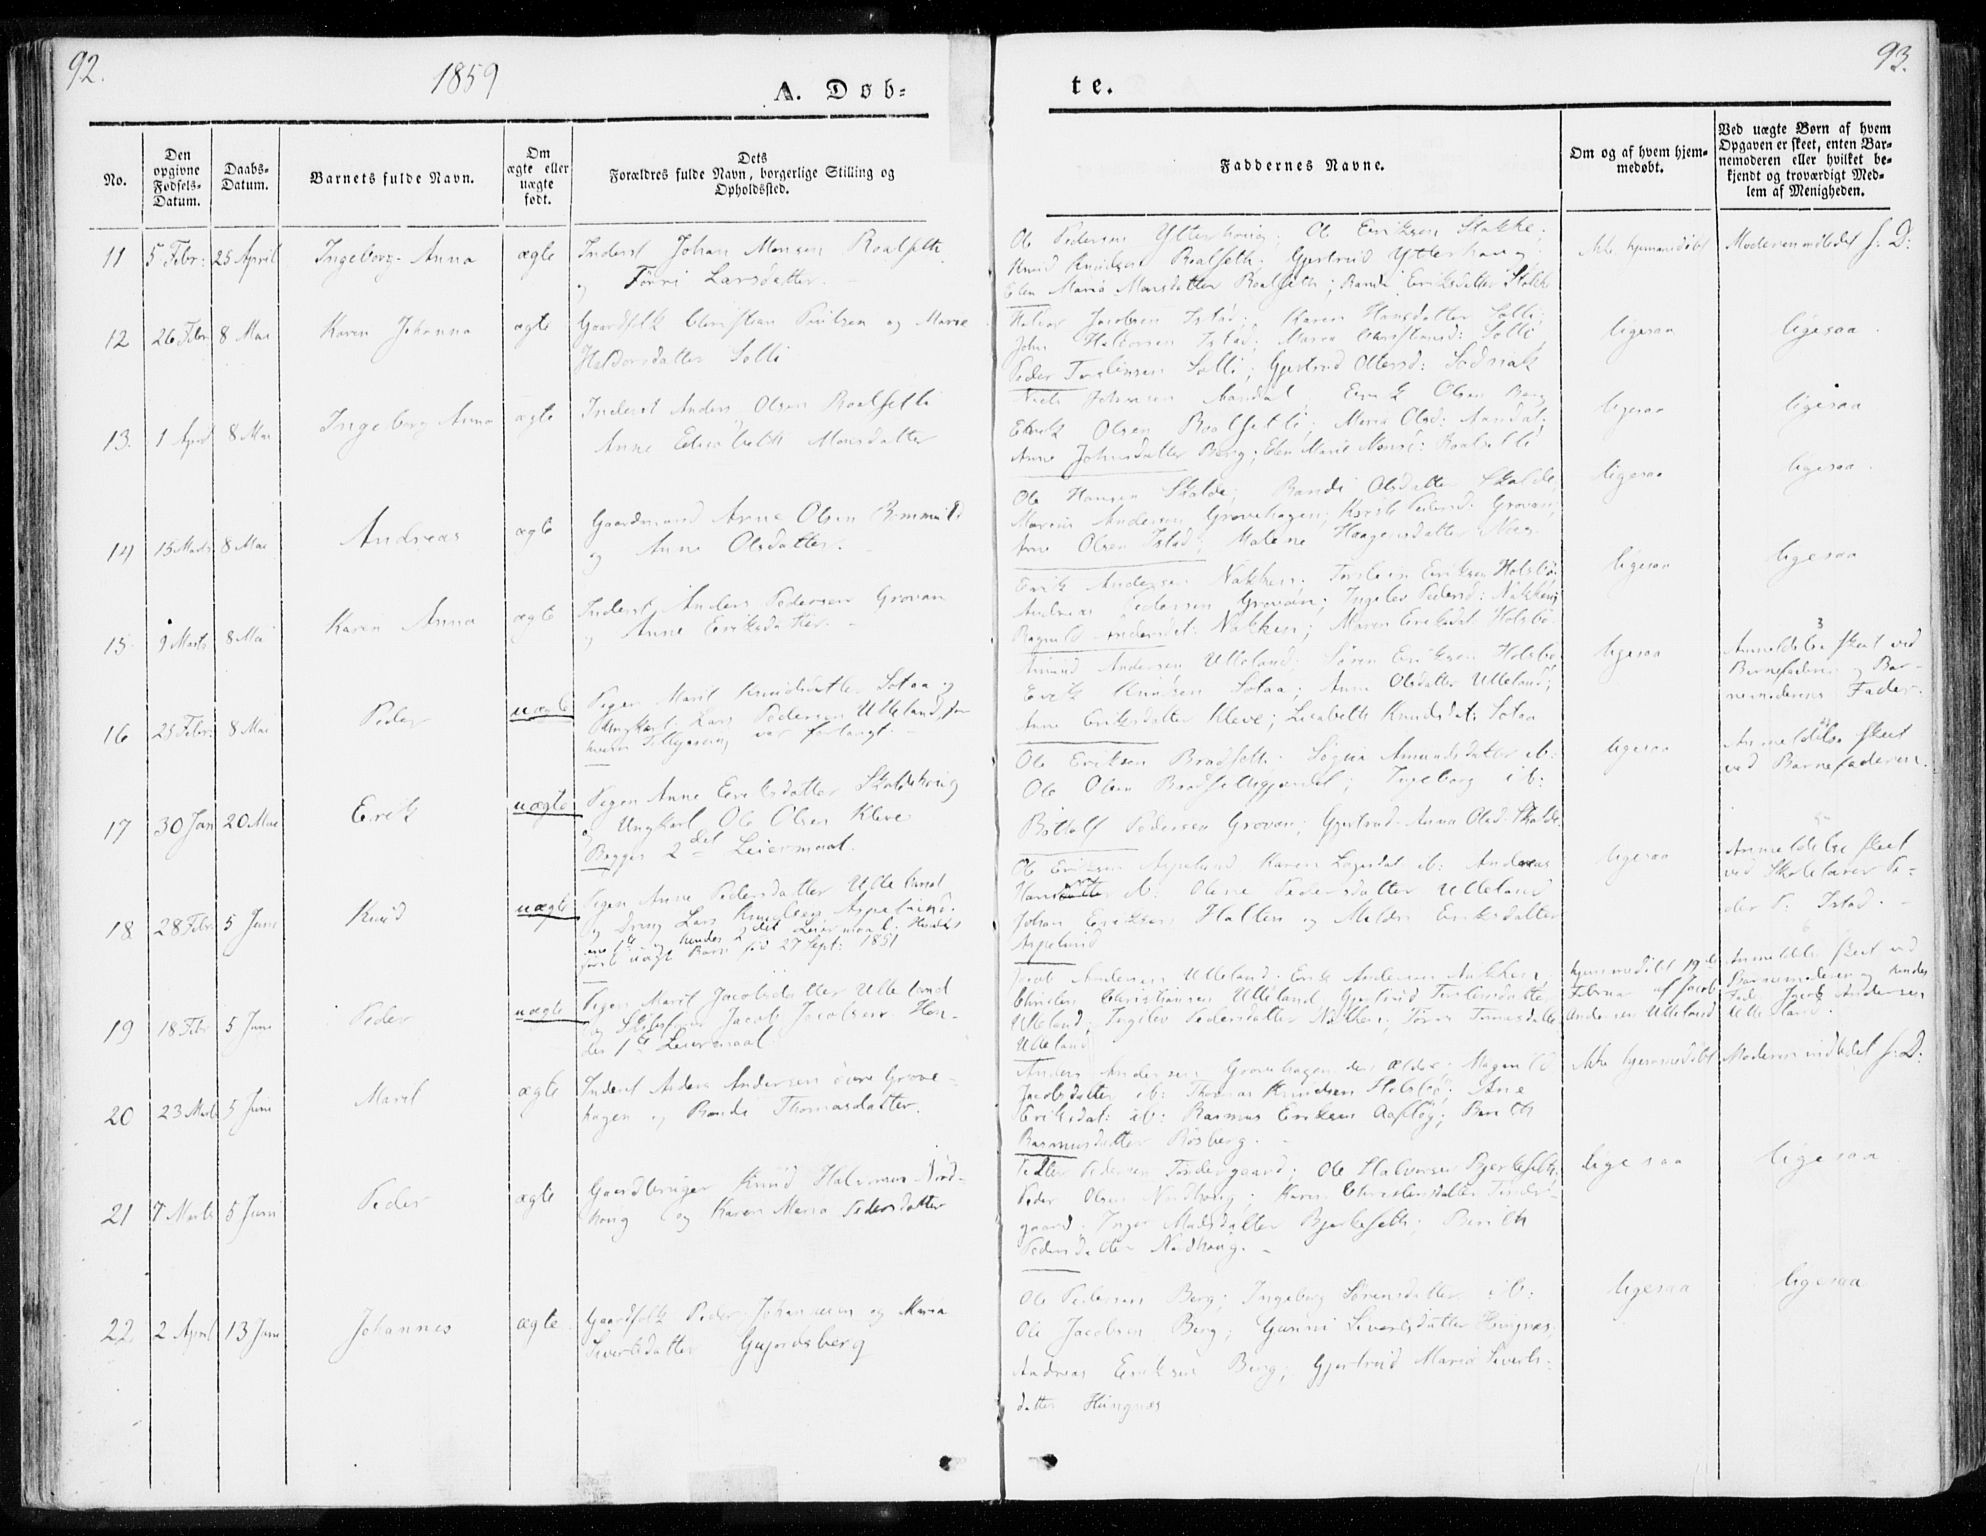 92.
1859
A. Døb-
te.
93.
No.
Den opgivne Fødsels-Datum.
Daabs-Datum.
Barnets fulde Navn.
Om ægte eller uægte født.
Dets Forældres fulde Navn, borgerlige Stilling og Opholdssted.
Faddernes Navne.
Om og af hvem hjem-medøbt.
Ved uægte Børn af hvem Opgaven er skeet, enten Bar-nemoderen eller hvilket be-kjendt og troværdigt Med-lem af Menigheden.
11 5 Febr: 25 April Ingeborg Anna ægte Inderst Johan Monsen Roalseth
og Larsdatter.
Ole Pedersen Ytterhoug; Ole Eriksen Stokke;
Knud Knudsen Roalseth; Gjertrud Ytterhoug;
Elen Maria Monsdatter Roalseth; Randi Eriksdatter Stokke
ikke hjemmedøbt
Moderen indledet s. D:
12 26 Febr 8 Mai Karen Johanna ægte Gaardfolk Christian Poulsen og Maren
Haldorsdatter Solli
Jacobsen Istad; Karen Hansdatter Solli;
John Halvorsen Istad; Maren Christiansd: Solli
Peder Solli; Gjertrud Olsesd:
ligesaa
ligesaa
13. 1 April 8 Mai Ingeborg Anna ægte Inderst Anders Olsen Roalsetli
Anne Elisabeth Monsdatter
Johnsen Aandal; Erik Olsen Berg
Erik Olsen Roalsetli; Maria Olsd: Aandal;
Anne Johnsdatter Berg; Elen Marie Monsd: Roalsetli
ligesaa
ligesaa
14 15 Marts 8 Mai Andreas ægte Gaardmand Arne Olsen
og Anne Olsdatter.
Ole Hansen Skolde; Randi Olsdatter Skolde
Andersen Grovehagen; Pedersd: Grovan;
Arne Olsen Istad; Malene Haagensdatter
ligesaa
ligesaa.
15. 9 Marts 8 Mai Karen Anna ægte Inderst Anders Pedersen Grovan
og Anne Eriksdatter.
Erik Andersen Nakken; Torstein Eriksen Holsbø
Andreas Pedersen Grovan; Ingelev Pedersd: Nakken;
Ragnild Andersdat: Nakken; Maren Eriksdat Holsbø
ligesaa
ligesaa
16 25 Febr: 8 Mai Peder uægte Pigen Marit Knudsdatter Sotaa og
Ungkarl Lars Pedersen Ulleland, for
hvem Tillysning var forlangt.
Amund Andersen Ulleland; Søren Eriksen Holsbø
Erik Knudsen Sotaa; Anne Olsdatter Ulleland;
Anne Eriksdatter Kleve; Lisabeth Knudsdat: Sotaa
ligesaa
Anmeldelse skeet ved
Barnefaderen og Bar-
nemoderens Fader.
17 30 Jan 20 Mai Erik uægte Pigen Anne Eriksdatter Skoldehoug
og Ungkarl Ole Olsen Kleve
Begges 2det Leiermaal.
Ole Eriksen Bradseth; Amundsdatter ib:
Ole Olsen; Ingeborg ib:
Bottolf Pedersen Grovan; Gjertrud Anna Olsd: Skolde
ligesaa
Anmeldelse skeet
ved Barnefaderen.
18 28 Febr 5 Juni Knud uægte Pigen Anne Pedersdatter Ulleland
og Dreng Lars Knudsen Aspelund.
1te og hendes 2det Leiermaal. Hendes
første uægte Barn fød 27 Sept: 1851
Ole Eriksen Aspelund Karen ib: Andreas
ib: Oline Pedersdatter Ulleland
Johan Eriksen Hatlen og Eriksdatter
Aspelund
ligesaa
Anmeldelse skeet
ved Skolelærer Pe-
der P. Istad.
19 18 Febr 5 Juni Peder uægte Pigen Marit Jacobsdatter Ulleland
og Jacob Jacobsen. Hen-
des 1te Leiermaal.
Jacob Andersen Ulleland; Erik Andersen Nakken
Christen Christiansen Ulleland; Gjertrud Torstensdatter
Ulleland; Ingelev Pedersdatter Nakken;
Ulleland
hjemmedøbt 19de
Februar af Jacob
Andersen Ulleland
Anmeldelse skeet ved
Barnemoderen og hendes
Fader Jacob Andersen
Ulleland.
20 23 Marts 5 Juni Marit ægte Inderst Anders Andersen øvre Grove-
hagen og Randi Thomasdatter.
Anders Andersen Grovehagen den ældre; Magnild
Jacobsdatter ib: Thomas Knudsen Holsbø; Ane
Eriksdat: ib: Rasmus Eriksen; Berith
Rasmusdatter Røsberg.
ikke hjemmedøbt
Moderen indledet s. D.
21 7 Marts 5 Juni Peder ægte Gaardbruger Knud Halvorsen Nord-
houg og Karen Maria Pedersdatter
Peder Pedersen; Ole Halvorsen Bjerkeseth
Peder Olsen Nordhoug; Karen Christensdatter
gaard; Inger Madsdatter Bjerkeseth; Berith
Pedersdatter Nordhoug.
ligesaa
ligesaa
22. 2 April 13 Juni Johannes ægte. Gaardfolk Peder Johannesen og Maria
Sivertsdatter
Ole Pedersen Berg; Ingeborg Sørensdatter ib:
Ole Jacobsen Berg; Gunni Sivertsdatter
Andreas Eriksen Berg; Gjertrud Maria Siverts-
datter
ligesaa
ligesaa